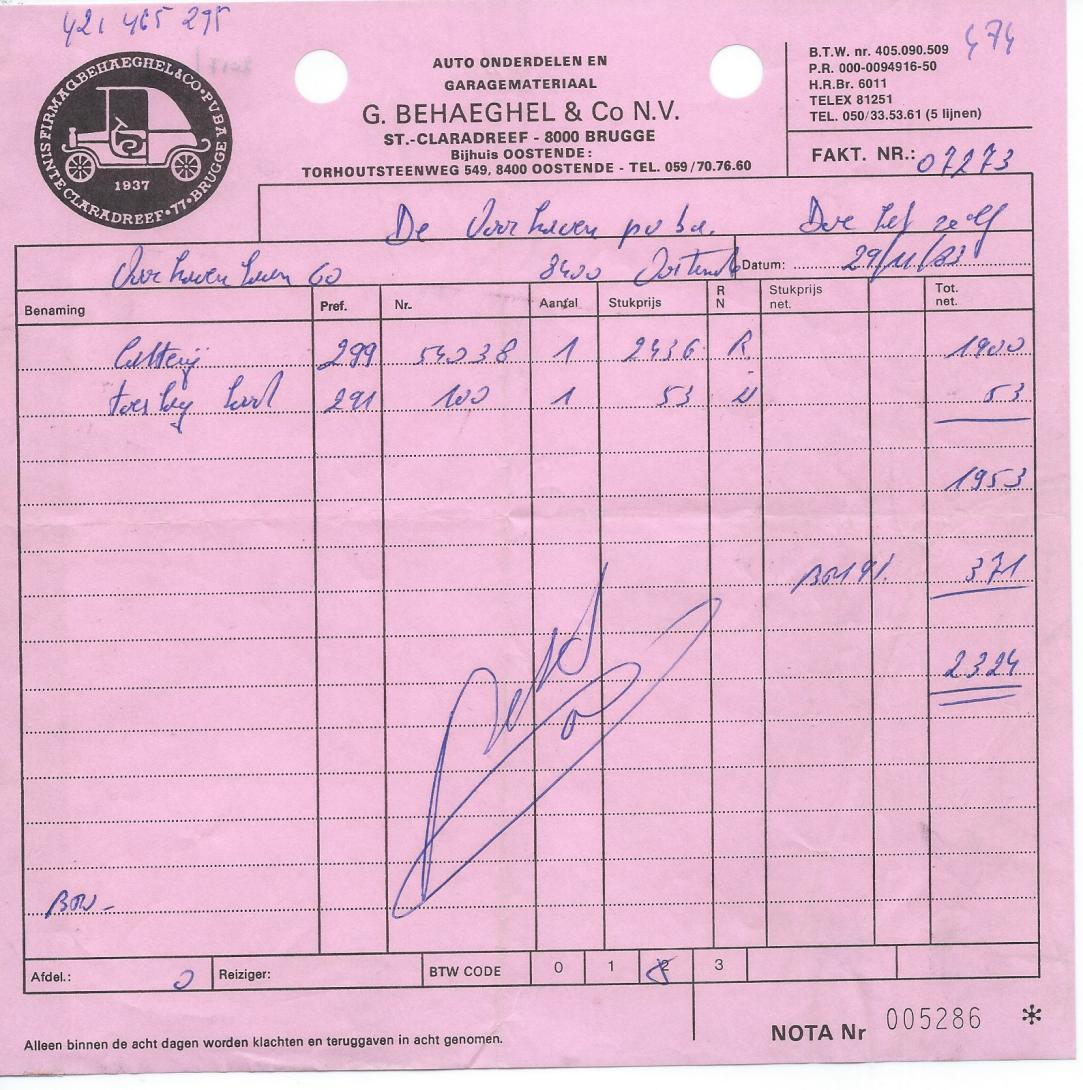 421 465 295
474
FIRMA G. BEHAEGHEL & CO • PVBA
SINTE CLARADREEF • 77 • BRUGGE
1937
AUTO ONDERDELEN EN
GARAGEMATERIAAL
G. BEHAEGHEL & Co N.V.
ST.-CLARADREEF - 8000 BRUGGE
Bijhuis OOSTENDE:
TORHOUTSTEENWEG 549, 8400 OOSTENDE - TEL. 059/70.76.60
B.T.W. nr. 405.090.509
P.R. 000-0094916-50
H.R.Br. 6011
TELEX 81251
TEL. 050/33.53.61 (5 lijnen)
FAKT. NR.: 07273
De Voorhaven pvba. Doe het zelf
Voorhavenlaan 60 8400 Oostende Datum: 29/11/83
Benaming Pref. Nr. Aantal Stukprijs R N Stukprijs net. Tot. net.
batterij 299 54038 1 2436 R 1900
toeslag lood 291 100 1 53 N 53
1953
BTW 19% 371
2324
BTW -
Afdel.: Reiziger: BTW CODE 0 1 2 3
Alleen binnen de acht dagen worden klachten en teruggaven in acht genomen.
NOTA Nr 005286 *